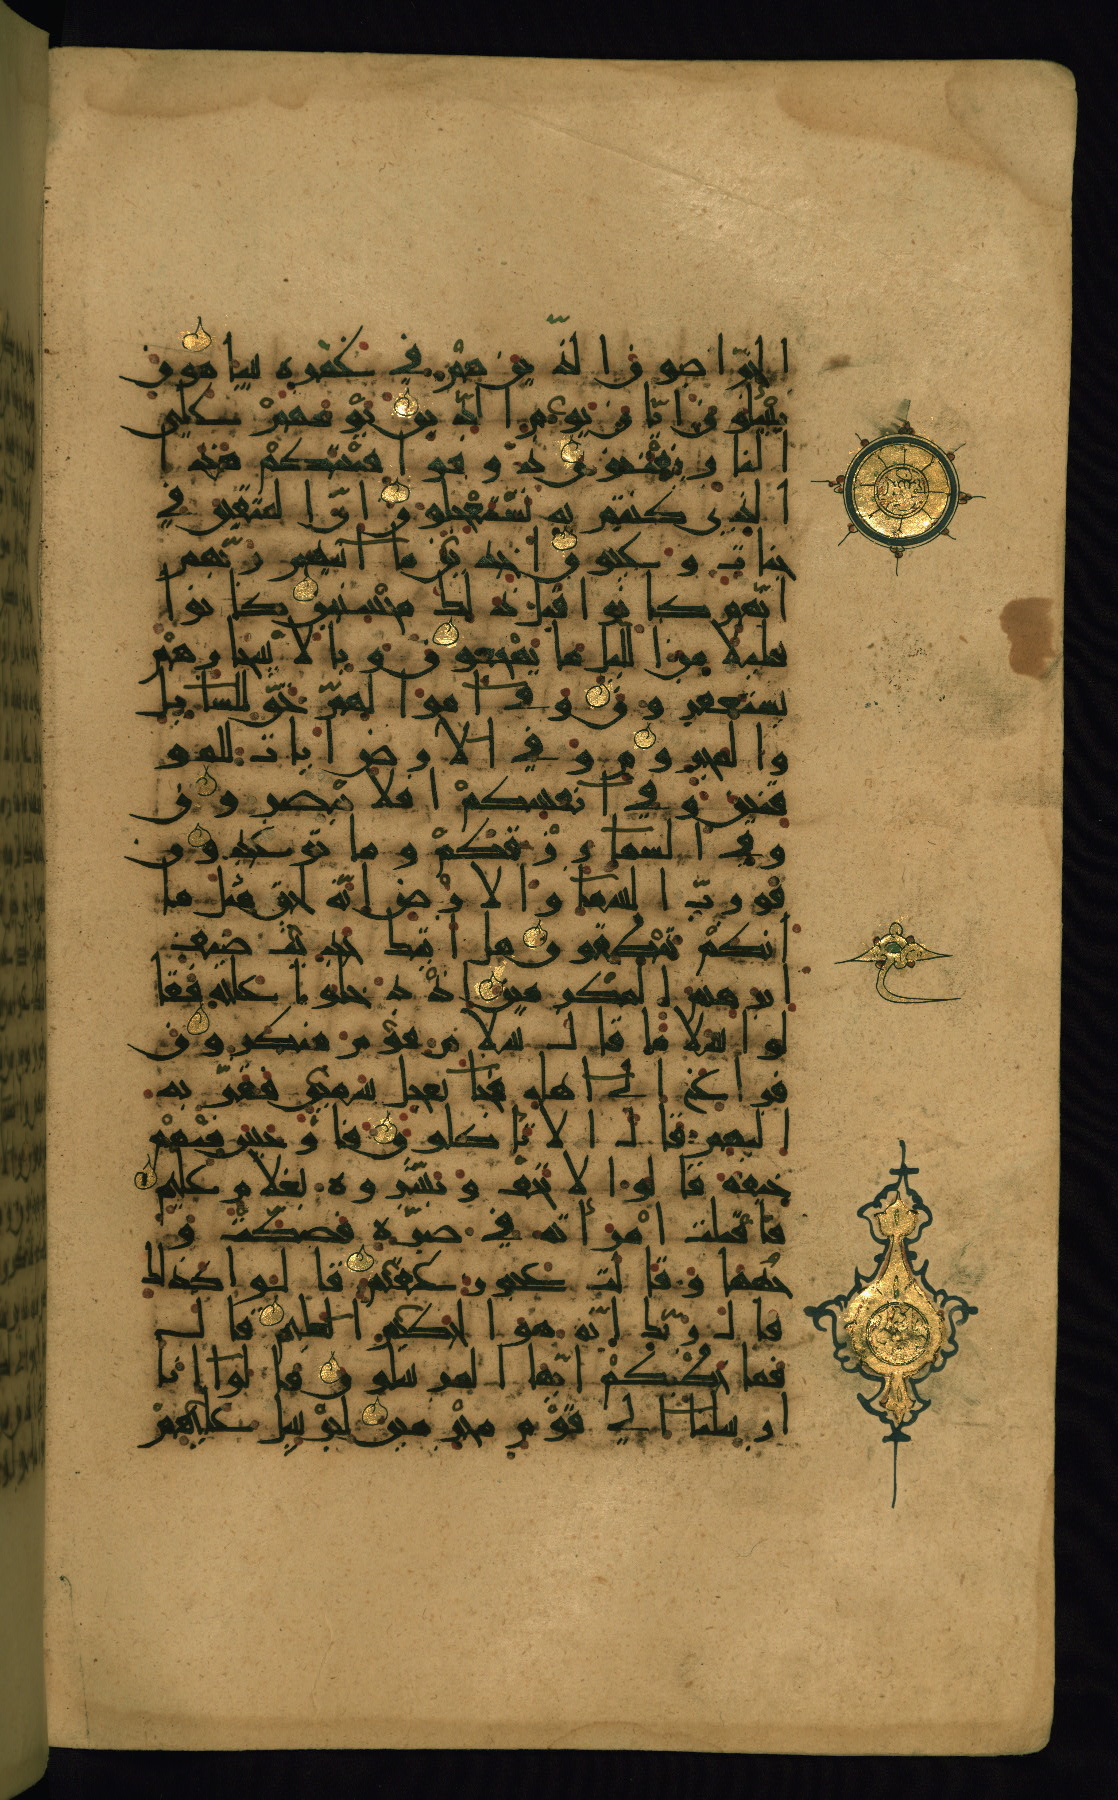 الخرّاصون الّذين هم في غمرة ساهون
يسئلون ايّان يوم الدّين يوم هم على
النار يفتنون ذوقوا فتنتكم هذا
الذي كنتم به تستعجلون انّ المتّقين في
جنات وعيون اخذين ما اتيهم ربّهم
انّهم كانوا قبل ذلك محسنين كانوا
قليلا من اليل ما يهجعون وبالاسحار هم
يستغفرون وفي اموالهم حقّ للسايل
والمحروم وفي الارض ايات للمو
قنين وفي انفسكم افلا تبصرون
وفي السماء رزقكم وما توعدون
فوربّ السماء والارض انّه لحق مثل ما
انكم تنطقون هل اتيك حديث ضيف
ابرهيم المكرمين اذ دخلوا عليه فقا
لوا سلاما قال سلام قوم منكرون
فراغ الى اهله فجا بعجل سمين فقرّبه
اليهم قال الا تاكلون فاوجس منهم
خيفة قالوا لا تخف وبشّروه بغلام عليم
فاقبلت امراته في صرّة فصكّت و
جهها وقالت عجوز عقيم قالوا كذلك
قال ربّك انّه هو الحكيم العليم قال
فما خطبكم ايّها المرسلون قالوا انا
ارسلنا الى قوم مجرمين لنرسل عليهم